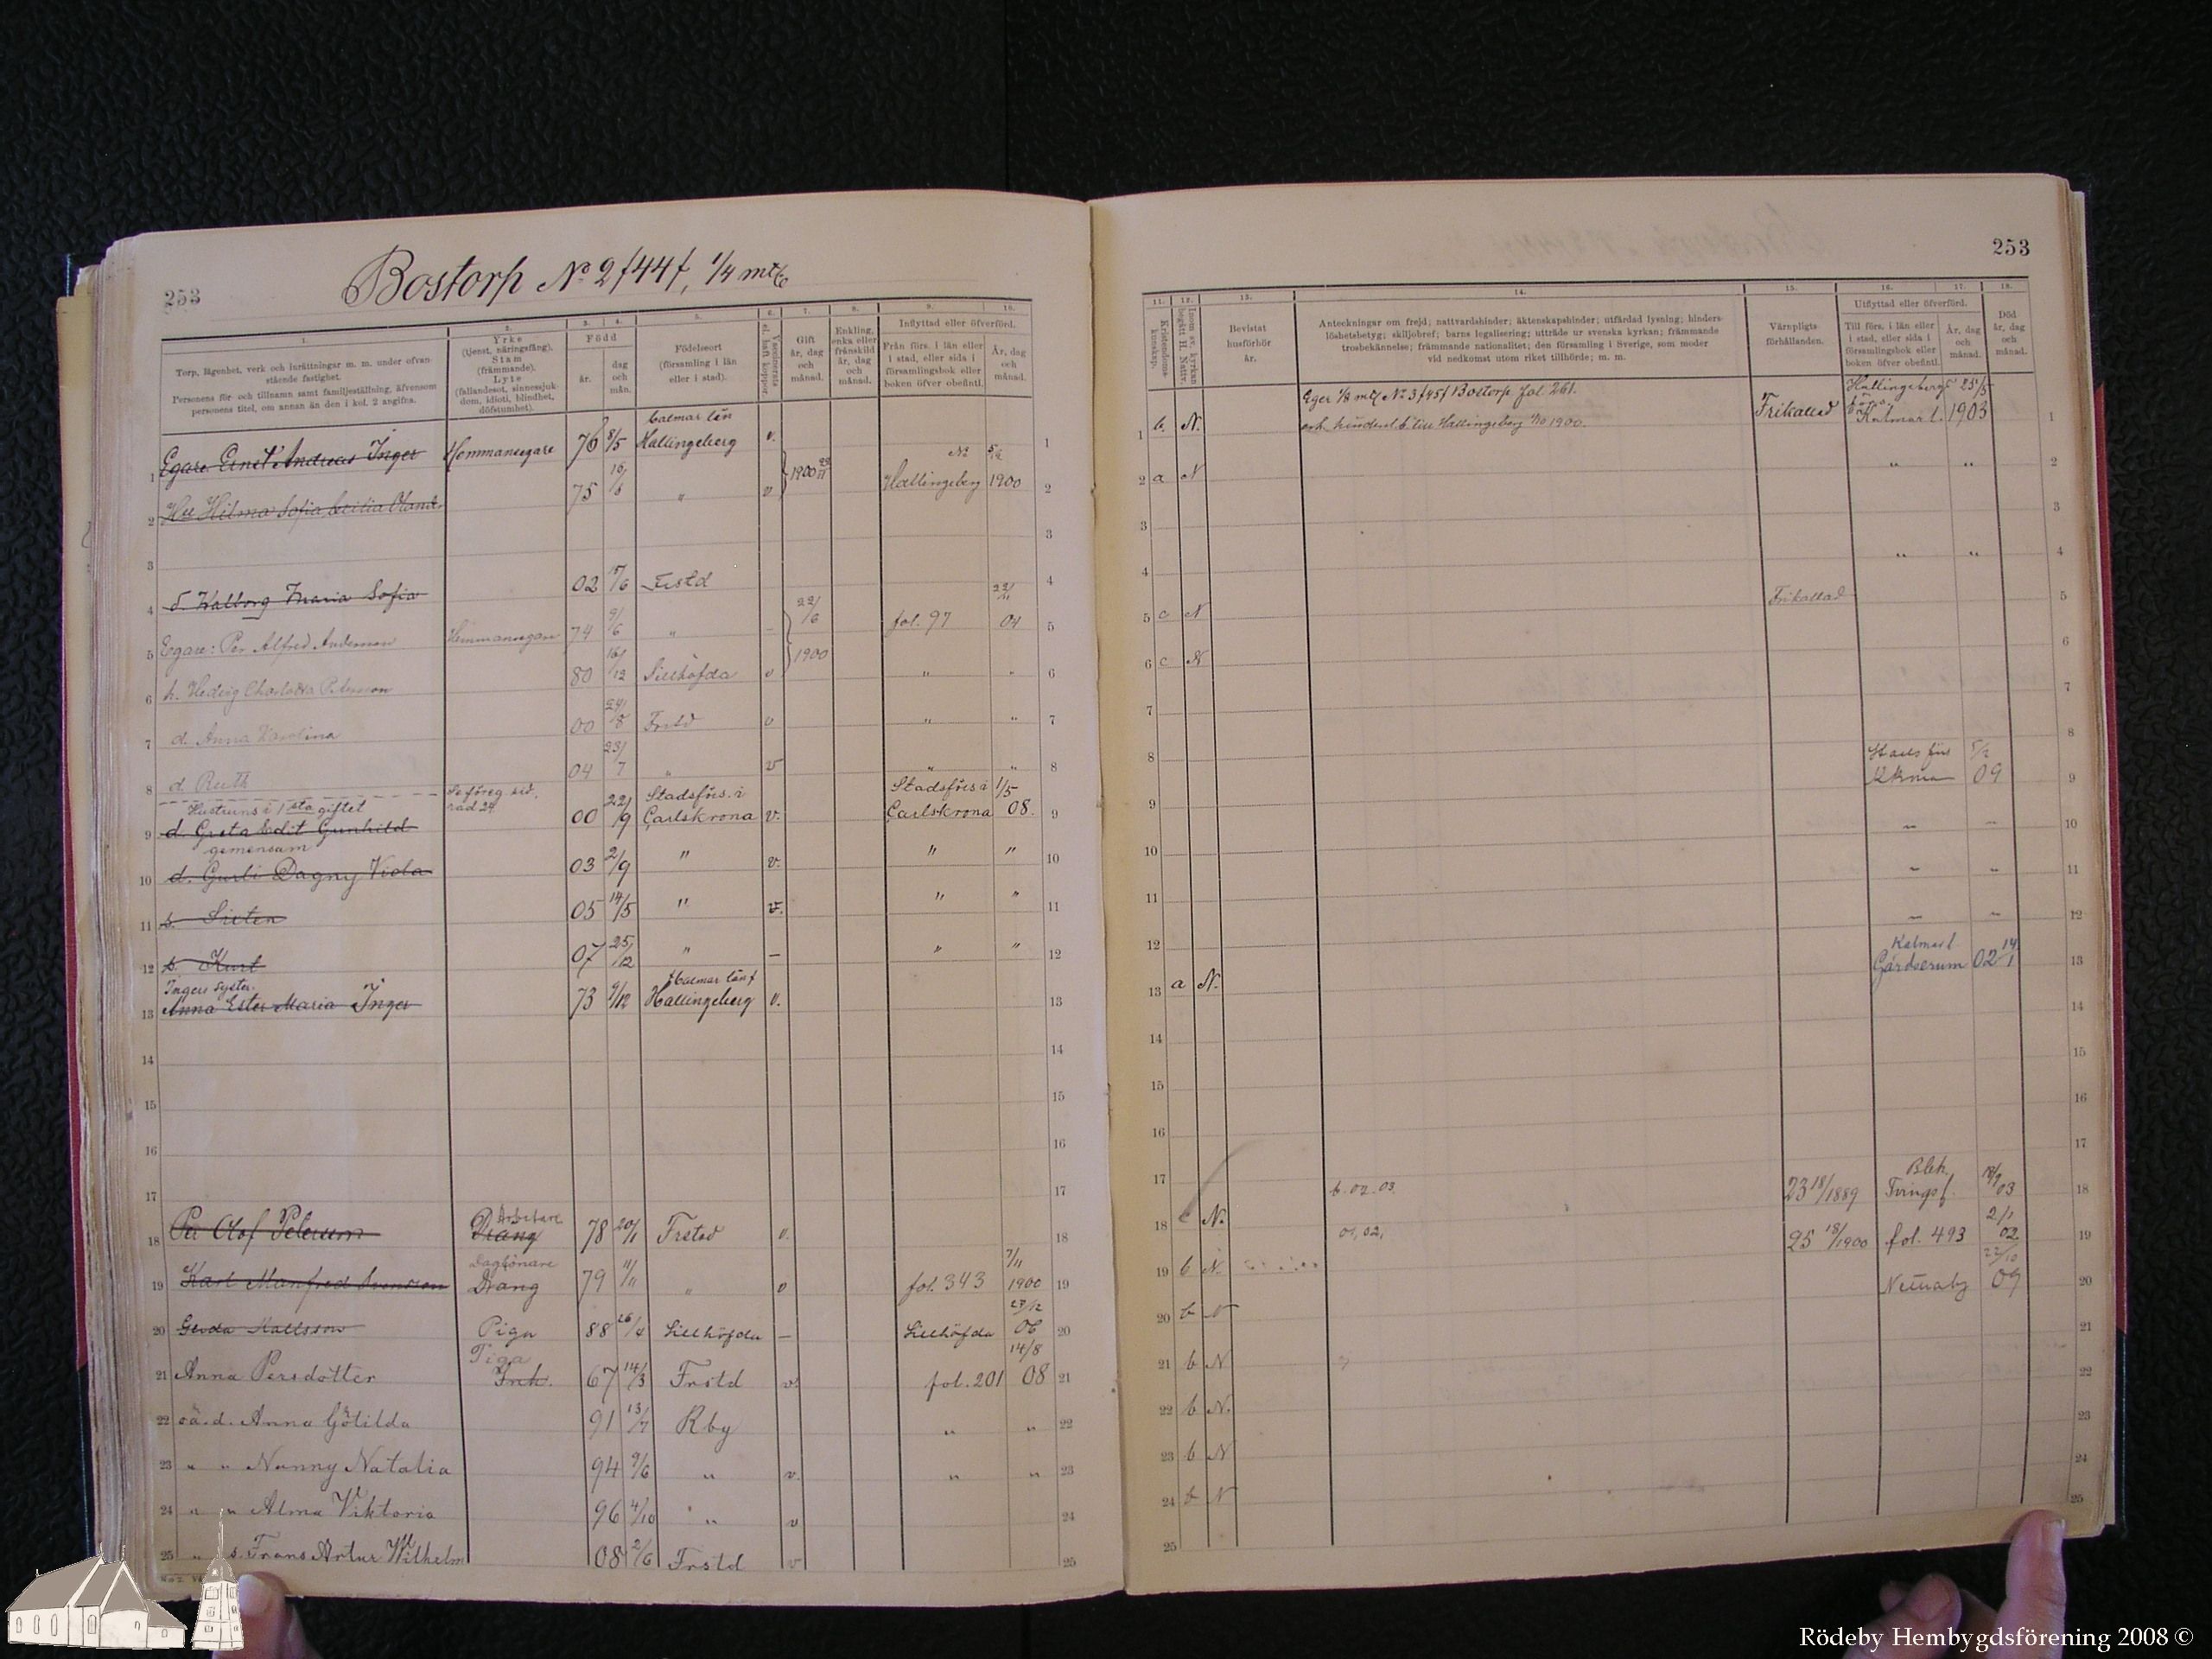 253
Bostorp No 2 /44/, 1/4 mtl
1. 2. 3. 4. 5. 6. 7. 8. 9. 10.
Torp, lägenhet, verk och inrättningar m. m. under ofvanstående fastighet.
Personens för- och tillnamn samt familjeställning, äfvensom personens titel, om annan än den i kol. 2 angifna.
Yrke (tjenst, näringsfång). Stam (främmande). Lyte (fallandesot, sinnessjukdom, idioti, blindhet, döfstumhet).
Född
år.
dag och mån.
Födelseort (församling i län eller i stad).
Vaccinerats el. haft koppor.
Gift år, dag och månad.
Enkling, enka eller frånskild år, dag och månad.
Inflyttad eller öfverförd.
Från förs. i län eller i stad, eller sida i församlingsbok eller boken öfver obefintl.
År, dag och månad.
1 Egare Ernst Andreas Inger Hemmansegare 76 8/5 Calmar län Hallingeberg v. 1
2 Hu Hilma Sofia Cecilia 75 " v 1900 Hallingeberg 1900 2
3 3
4 d. Walborg Maria Sofia 02 17/6 Frstd 4
5 Egare: Per Alfred Andersson Hemmansegare 74 9/6 " 22/6 1900 fol. 97 22/11 04 5
6 h. Hedvig Charlotta Petersson 80 16/12 Sillhöfda v " " 6
7 d. Anna Karolina 00 24/8 Frstd v " " 7
8 d. Ruth 04 23/7 " v " " 8
Hustruns i 1sta giftet Se föreg. sid. rad 24
9 d. Greta Edit Gunhild 00 22/9 Stadsförs. i Carlskrona v. Stadsförs i Carlskrona 1/5 08. 9
gemensam
10 d. Gurli Dagny Viola 03 2/9 " v. " " 10
11 s. Sixten 05 14/5 " v. " " 11
12 s. Kurt 07 25/12 " — " " 12
Ingers syster.
13 Anna Ester Maria Inger 73 9/12 /Kalmar län/ Hallingeberg v. 13
14 14
15 15
16 16
17 17
18 Per Olof Peterson Arbetare Dräng 78 20/1 Frstad v. 18
19 Karl Manfred Svensson Daglönare Dräng 79 11/11 " v fol. 343 7/11 1900 19
20 Gerda Mattsson Piga 88 26/4 Sillhöfda — Sillhöfda 27/12 06 20
21 Anna Persdotter Piga Inh. 67 14/3 Frstd v. fol. 201 14/8 08 21
22 oä. d. Anna Götilda 91 13/7 Rby " " 22
23 " " Nanny Natalia 94 9/6 " v. " " 23
24 " " Alma Viktoria 96 4/10 " v 24
25 " s. Frans Artur Wilhelm 08 2/6 Frstd v 25
253
11. 12. 13. 14. 15. 16. 17. 18.
Kristendomskunskap.
Inom sv. kyrkan begått H. Nattv.
Bevistat husförhör år.
Anteckningar om frejd; nattvardshinder; äktenskapshinder; utfärdad lysning; hinderslöshetsbetyg; skiljobref; barns legalisering; utträde ur svenska kyrkan; främmande trosbekännelse; främmande nationalitet; den församling i Sverige, som moder vid nedkomst utom riket tillhörde; m. m.
Värnpligtsförhållanden.
Utflyttad eller öfverförd.
Till förs. i län eller i stad, eller sida i församlingsbok eller boken öfver obefintl.
År, dag och månad.
Död år, dag och månad.
Eger 1/8 mtl No 3 /45/ Bostorp fol. 261.
1 b. N. erh. hinderl.b. till Hallingeberg 1900. Frikallad Hallingeberg Kalmar l. 25/5 1903 1
2 a N " " 2
3 3
4 " " 4
5 c N Frikallad 5
6 c N 6
7 7
8 8
9 Stads förs Kkrona 5/2 09 9
10 10
11 11
12 12
13 a N. Kalmar l Gärdserum 02 14/1 13
14 14
15 15
16 16
17 17
18 c N. b. 02. 03. 23 18/1889 Blek. Tvings f. 18/9 03 18
19 b N. 01, 02, 25 18/1900 fol. 493 2/1 02 19
20 b Nättraby 22/10 09 20
21 b N 21
22 b N. 22
23 b N 23
24 b N 24
25 25
Rödeby Hembygdsförening 2008 ©